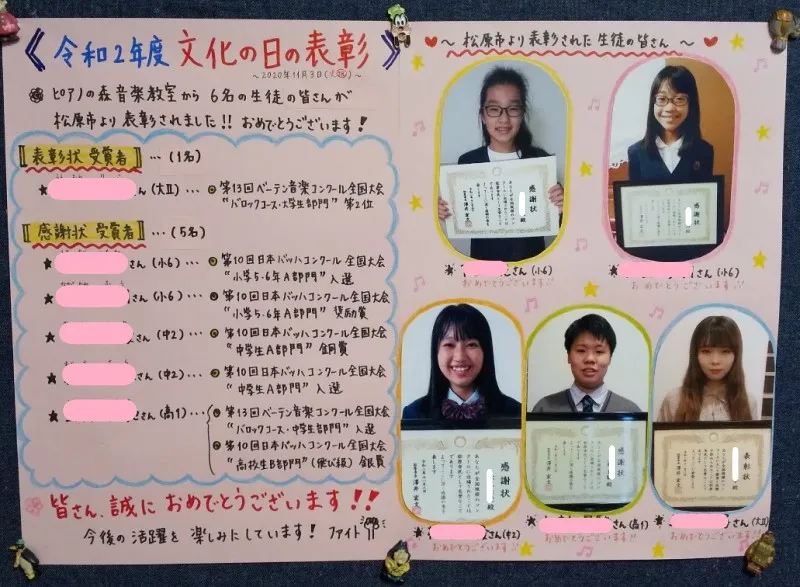 《 令和2年度 文化の日の表彰 》
～2020年11月3日(火㊗)～
㊗ ピアノの森音楽教室から 6名の生徒の皆さんが
松原市より表彰されました!! おめでとうございます!
表彰状 受賞者 … (1名)
★ ん (大Ⅱ) … ◎ 第13回ベーテン音楽コンクール全国大会
"バロックコース・大学生部門" 第2位
感謝状 受賞者 … (5名)
★ さん (小6) … ◎ 第10回日本バッハコンクール全国大会
"小学5・6年A部門" 入選
★ さん (小6) … ◎ 第10回日本バッハコンクール全国大会
"小学5・6年A部門" 奨励賞
★ さん (中2) … ◎ 第10回日本バッハコンクール全国大会
"中学生A部門" 銅賞
★ さん (中2) … ◎ 第10回日本バッハコンクール全国大会
"中学生A部門" 入選
★ さん (高1) … ◎ 第13回ベーテン音楽コンクール全国大会
"バロックコース・中学生部門" 入選
◎ 第10回日本バッハコンクール全国大会
"高校生B部門" (飛び級) 銀賞
皆さん、誠に おめでとうございます!!
今後の活躍を 楽しみにしています! ファイト
♥ ～ 松原市より表彰された生徒の皆さん ～ ♥
感謝状
殿
感謝状
殿
★ さん (小6)
おめでとうございます!!
★ さん (小6)
おめでとうございます!!
感謝状
殿
感謝状
殿
表彰状
殿
★ さん (中2)
おめでとうございます!!
★ さん (高1)
おめでとうございます!!
★ さん (大Ⅱ)
おめでとうございます!!